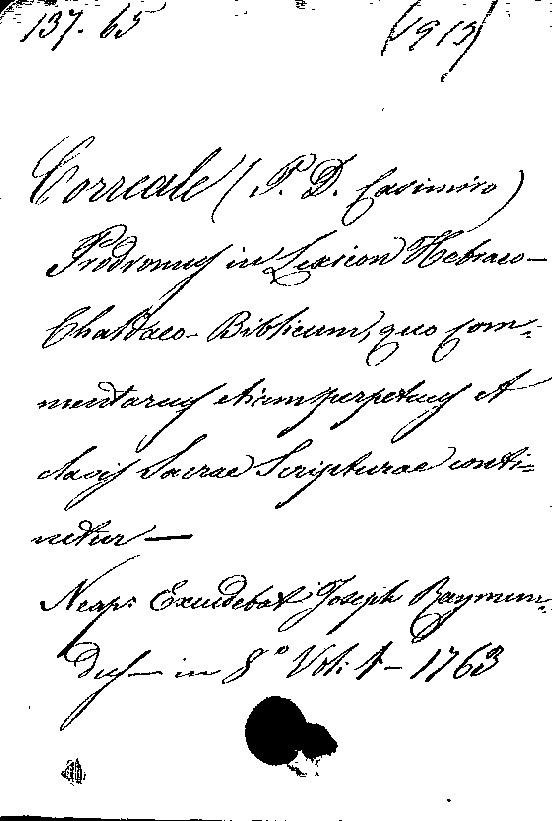 137. 65 (1913)
Correale (P. D. Casimiro)
Prodromus in Lexicon Hebraeo-
Chaldaeo-Biblicum, quo com-
mentarius etiam perpetuus et
clavis Sacrae Scripturae conti-
netur —
Neap: Excudebat Joseph Raymun-
dus — in 8° Vol: 1 — 1763